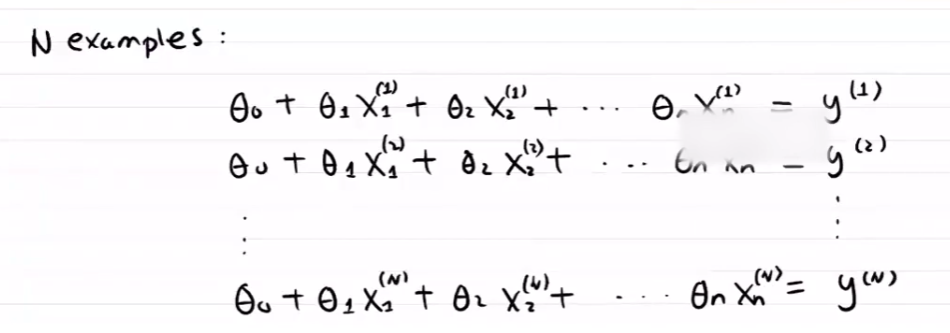 N examples :
θ₀ + θ₁ x₁⁽¹⁾ + θ₂ x₂⁽¹⁾ + ... = y⁽¹⁾
θ₀ + θ₁ x₁⁽²⁾ + θ₂ x₂⁽²⁾ + ... θₙ xₙ = y⁽²⁾
⋮ ⋮
θ₀ + θ₁ x₁⁽ᴺ⁾ + θ₂ x₂⁽ᴺ⁾ + ... θₙ xₙ⁽ᴺ⁾ = y⁽ᴺ⁾